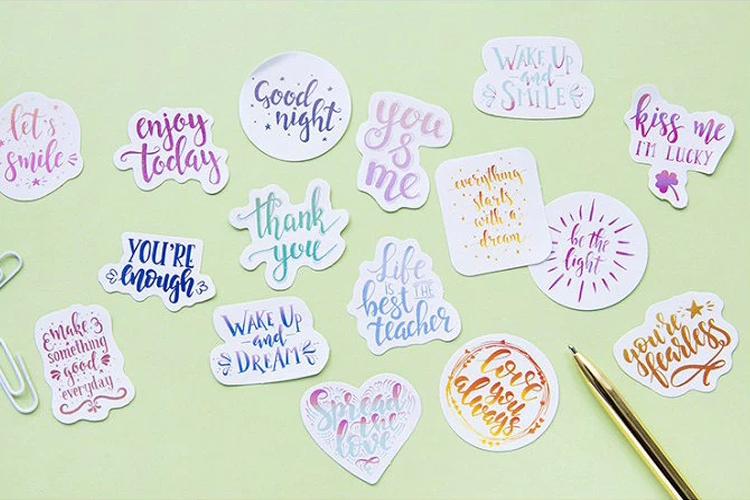 let's
smile
enjoy
today
Good
night
you
&
me
WAKE UP
and
SMILE
kiss me
I'M LUCKY
everything
starts
with a
dream
thank
you
be the
light
YOU'RE
enough
Life
IS THE
best
teacher
WAKE UP
and
DREAM
make
something
good
everyday
Spread
the
love
love
you
always
you're
fearless